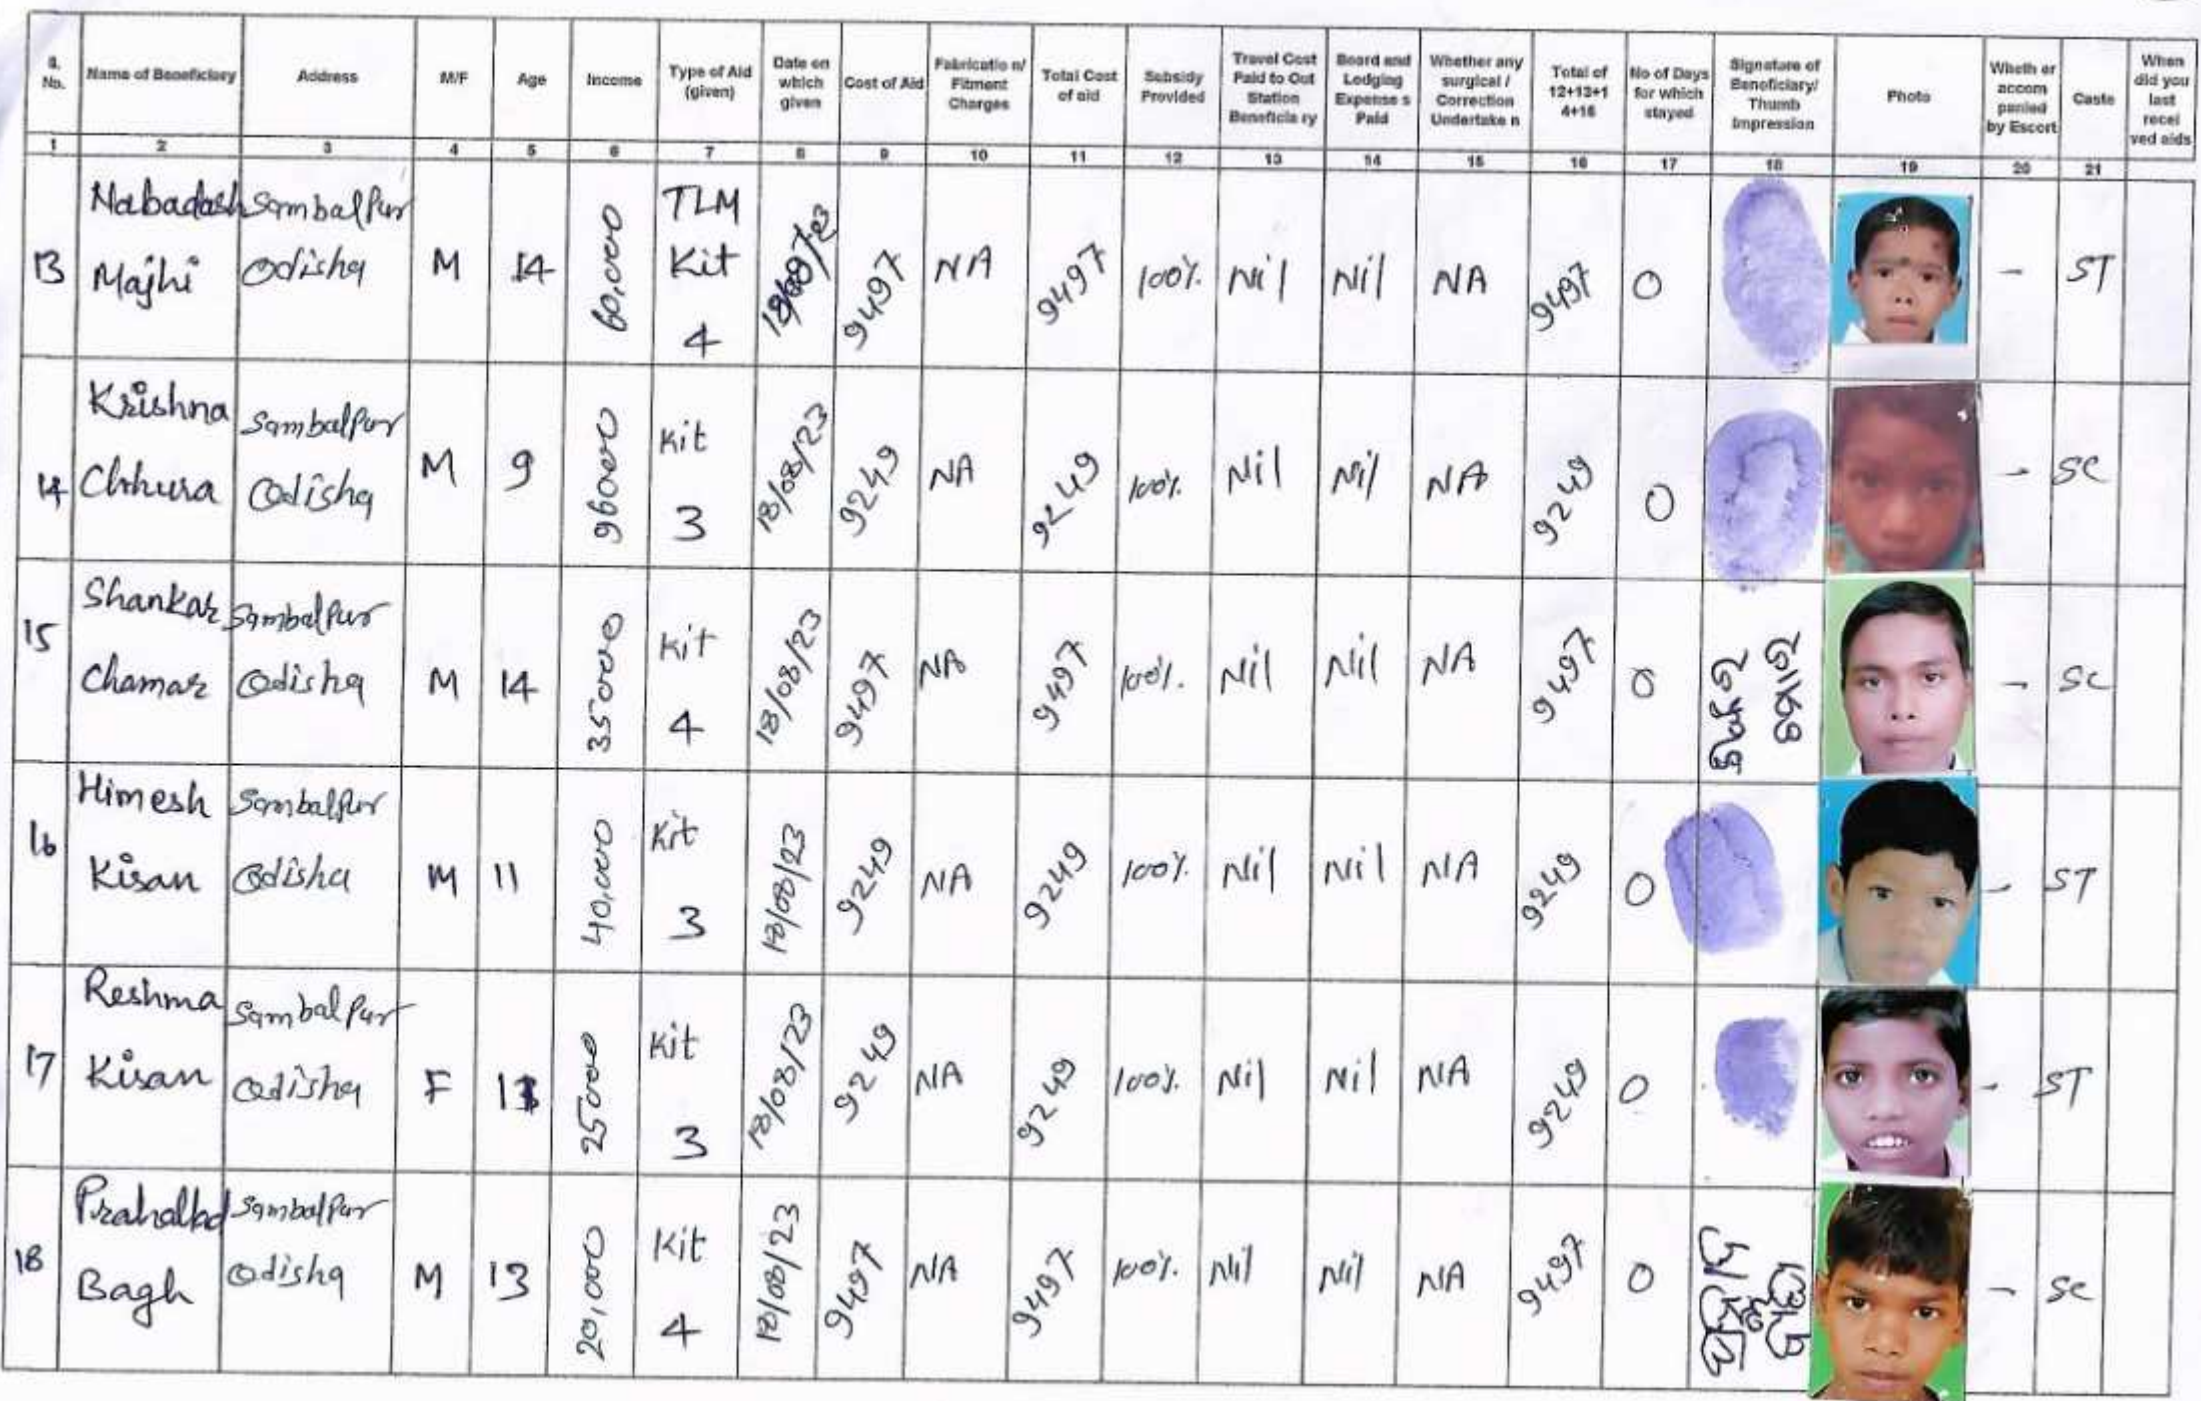 S. No. Name of Beneficiary Address M/F Age Income Type of Aid (given) Date on which given Cost of Aid Fabricatio n/ Fitment Charges Total Cost of aid Subsidy Provided Travel Cost Paid to Out Station Beneficia ry Board and Lodging Expense s Paid Whether any surgical / Correction Undertake n Total of 12+13+1 4+15 No of Days for which stayed Signature of Beneficiary/ Thumb Impression Photo Wheth er accom panied by Escort Caste When did you last recei ved aids
1 2 3 4 5 6 7 8 9 10 11 12 13 14 15 16 17 18 19 20 21
13 Nabadash Majhi Sambalpur Odisha M 14 60,000 TLM Kit 4 18/08/23 9497 NA 9497 100% Nil Nil NA 9497 0 - ST
14 Krishna Chhura Sambalpur Odisha M 9 96000 Kit 3 18/08/23 9249 NA 9249 100% Nil Nil NA 9249 0 - SC
15 Shankar Chamar Sambalpur Odisha M 14 35000 Kit 4 18/08/23 9497 NA 9497 100% Nil Nil NA 9497 0 - SC
16 Himesh Kisan Sambalpur Odisha M 11 40,000 Kit 3 18/08/23 9249 NA 9249 100% Nil Nil NA 9249 0 - ST
17 Reshma Kisan Sambalpur Odisha F 13 25000 Kit 3 18/08/23 9249 NA 9249 100% Nil Nil NA 9249 0 - ST
18 Prahallad Bagh Sambalpur Odisha M 13 20,000 Kit 4 18/08/23 9497 NA 9497 100% Nil Nil NA 9497 0 - SC